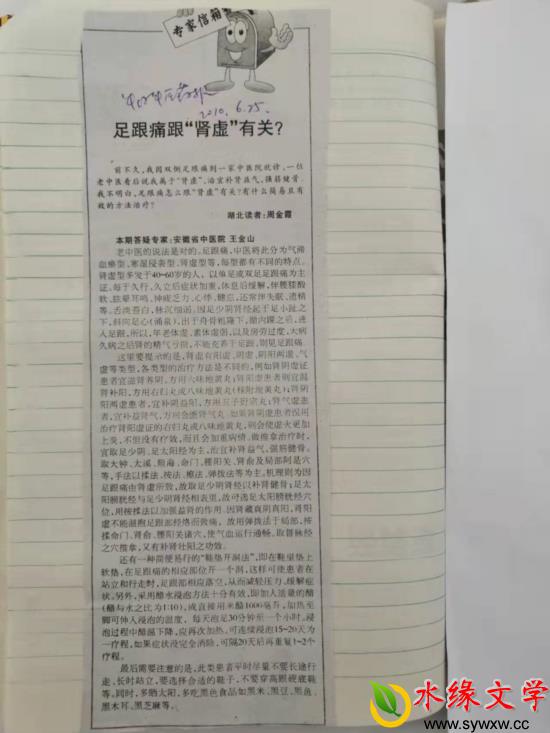 专家信箱
2010. 6.25.
足跟痛跟“肾虚”有关?
前不久,我因双侧足跟痛到一家中医院就诊,一位
老中医看后说我属于“肾虚”,治宜补肾益气,强筋健骨。
我不明白,足跟痛怎么跟“肾虚”有关?有什么简易且有
效的方法治疗?
湖北读者:周金霞
本期答疑专家:安徽省中医院 王金山
老中医的说法是对的。足跟痛,中医将此分为气滞
血瘀型、寒湿侵袭型、肾虚型等,每型都有不同的特点。
肾虚型多发于40~60岁的人,以单足或双足足跟痛为主
证,每于久行、久立后症状加重,休息后缓解,伴腰膝酸
软、眩晕耳鸣、神疲乏力、心悸、健忘,还常伴失眠、遗精
等,舌淡苔白,脉沉细弱。因足少阴肾经起于足小趾之
下,斜向足心(涌泉),出于舟骨粗隆下,循内踝之后,进
入足跟,所以,年老体虚、素体虚弱,以及房劳过度、大病
久病之后肾的精气亏损,不能充养于足跟,则见足跟痛。
这里要提示的是,肾虚有阳虚、阴虚、阴阳两虚、气
虚等类型,各类型的治疗方法是不同的,例如肾阴虚证
患者宜滋肾养阴,方用六味地黄丸;肾阳虚患者则宜温
肾补阳,方用右归丸或八味地黄丸(桂附地黄丸);肾阴
阳两虚患者,宜补阴益阳,方用五子衍宗丸;肾气虚患
者,宜补益肾气,方可金匮肾气丸。如果肾阴虚患者误用
治疗肾阳虚证的右归丸或八味地黄丸,则会使虚火更加
上炎,不但没有疗效,而且会加重病情。做推拿治疗时,
宜取足少阴、足太阳经为主,治宜补肾益气,强筋健骨。
取大钟、太溪、照海、命门、腰阳关、肾俞及局部阿是穴
等,手法以揉法、按法、擦法、弹拨法等为主。机理则为因
足跟痛由肾虚所致,故取足少阴肾经以补肾健骨;足太
阳膀胱经与足少阴肾经相表里,故可选足太阳膀胱经穴
位,用按揉法以加强益肾的作用。因肾藏真阴真阳,肾阳
虚不能温煦足跟部经络而致痛,故用弹拨法于局部,按
揉命门、肾俞、腰阳关诸穴,使气血运行通畅。取督脉经
之穴推拿,又有补肾壮阳之功效。
还有一种简便易行的“鞋垫开洞法”,即在鞋里垫上
软垫,在足跟痛的相应部位开一个洞,这样可使患者在
站立和行走时,足跟部相应落空,从而减轻压力,缓解症
状。另外,采用醋水浸泡方法十分有效,即加入适量的醋
(醋与水之比为1:10),或直接用米醋1000毫升,加热至
脚可伸入浸泡的温度,每天泡足30分钟至一个小时。浸
泡过程中醋温下降,应再次加热。可连续浸泡15~20天为
一疗程,如果症状没完全消除,可隔20天后再重复1~2个
疗程。
最后需要注意的是,此类患者平时尽量不要长途行
走、长时站立,要选择合适的鞋子,不要穿高跟硬底鞋
等。同时,多晒太阳,多吃黑色食品如黑米、黑豆、黑鱼、
黑木耳、黑芝麻等。
水缘文学
www.sywxw.cc